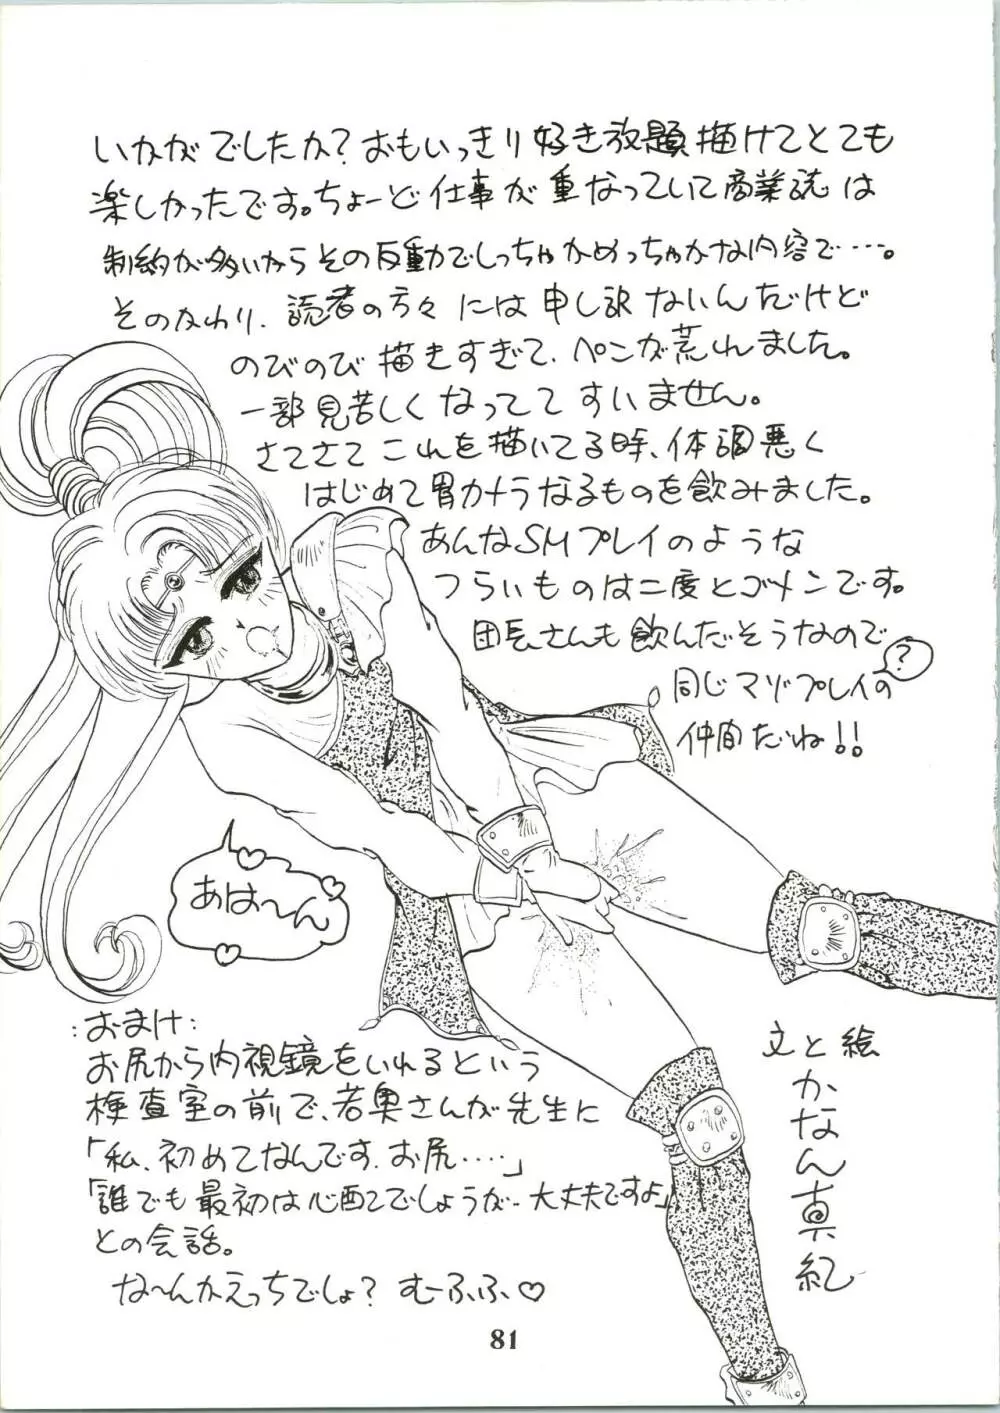 いかがでしたか?おもいっきり好き放題描けてとても
楽しかったです。ちょーど仕事が重なっていて商業誌は
制約が多いからその反動でしっちゃかめっちゃかな内容で・・・・。
そのかわり、読者の方々には申し訳ないんだけど
のびのび描きすぎて、ペンが荒れました。
一部見苦しくなってて すいません。
さてさてこれを描いてる時、体調悪く
はじめて胃カメラなるものを飲みました。
あんなSMプレイのような
つらいものは二度とゴメンです。
団長さんも飲んだそうなので
同じマゾプレイの
?
仲間だね!!
あは〜ん
:おまけ:
お尻から内視鏡をいれるという
検査室の前で、若奥さんが先生に
「私、初めてなんです、お尻・・・・」
「誰でも最初は心配でしょうが‥大丈夫ですよ」
との会話。
な〜んかえっちでしょ? むーふふ♡
文と絵
かなん真紀
81